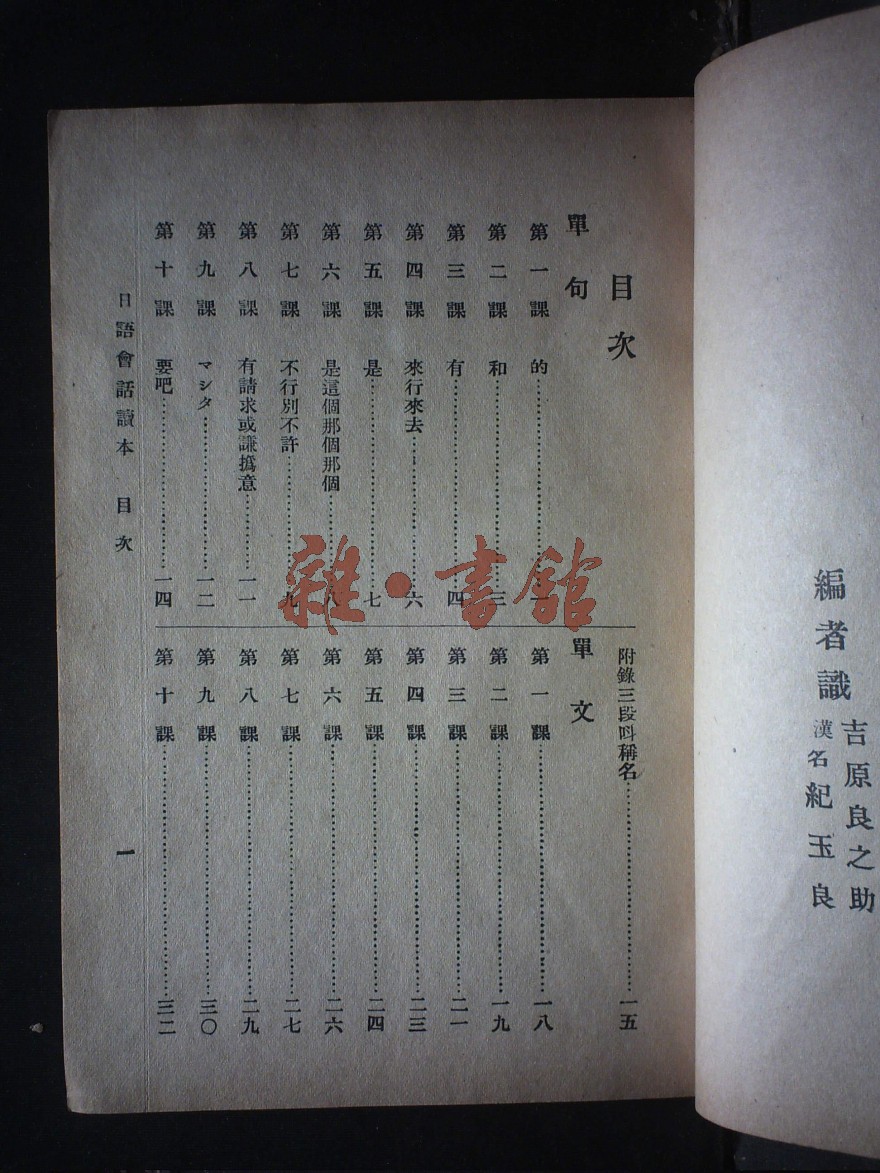 編者識
吉原良之助
漢名 紀玉良
目次
單句
第一課 的……
第二課 和……三
第三課 有……四
第四課 來行來去……六
第五課 是……七
第六課 是這個那個那個……八
第七課 不行別不許……九
第八課 有請求或謙撝意……一一
第九課 マシタ……一二
第十課 要吧……一四
附錄三段呌稱名……一五
單文
第一課……一八
第二課……一九
第三課……二一
第四課……二三
第五課……二四
第六課……二六
第七課……二七
第八課……二九
第九課……三〇
第十課……三二
日語會話讀本 目次 一
雜·書館